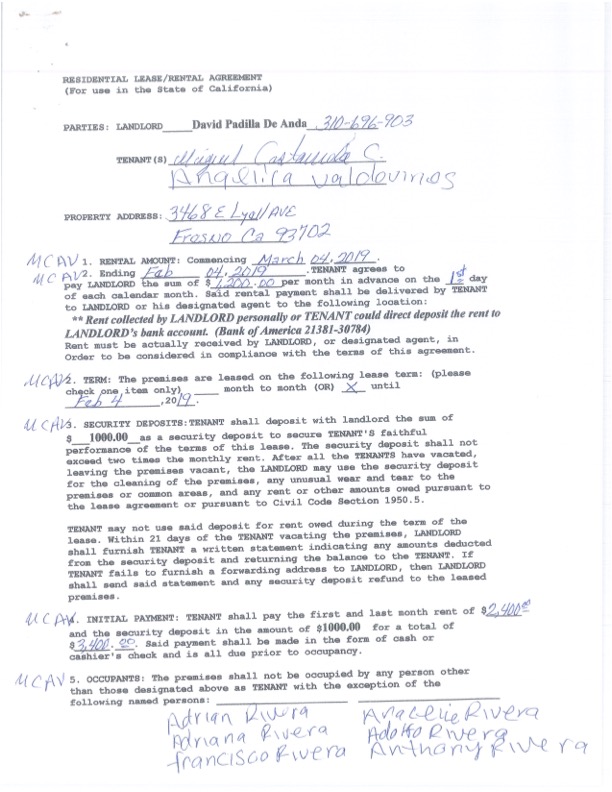 RESIDENTIAL LEASE/RENTAL AGREEMENT
(For use in the State of California)
PARTIES: LANDLORD David Padilla De Anda 310-696-903
TENANT(S) Miguel Castaneda C.
Angelica Valdovinos
PROPERTY ADDRESS: 3468 E Lyell AVE
Fresno Ca 93702
MCAV 1. RENTAL AMOUNT: Commencing March 04, 2019.
MCAV 2. Ending Feb 04, 2019 .TENANT agrees to
pay LANDLORD the sum of $1,200.00 per month in advance on the 1st day
of each calendar month. Said rental payment shall be delivered by TENANT
to LANDLORD or his designated agent to the following location:
** Rent collected by LANDLORD personally or TENANT could direct deposit the rent to
LANDLORD's bank account. (Bank of America 21381-30784)
Rent must be actually received by LANDLORD, or designated agent, in
Order to be considered in compliance with the terms of this agreement.
MCAV 2. TERM: The premises are leased on the following lease term: (please
check one item only) ____ month to month (OR) X until
Feb 4 ,2019.
MCAV 3. SECURITY DEPOSITS: TENANT shall deposit with landlord the sum of
$ 1000.00 as a security deposit to secure TENANT'S faithful
performance of the terms of this lease. The security deposit shall not
exceed two times the monthly rent. After all the TENANTS have vacated,
leaving the premises vacant, the LANDLORD may use the security deposit
for the cleaning of the premises, any unusual wear and tear to the
premises or common areas, and any rent or other amounts owed pursuant to
the lease agreement or pursuant to Civil Code Section 1950.5.
TENANT may not use said deposit for rent owed during the term of the
lease. Within 21 days of the TENANT vacating the premises, LANDLORD
shall furnish TENANT a written statement indicating any amounts deducted
from the security deposit and returning the balance to the TENANT. If
TENANT fails to furnish a forwarding address to LANDLORD, then LANDLORD
shall send said statement and any security deposit refund to the leased
premises.
MCAV 4. INITIAL PAYMENT: TENANT shall pay the first and last month rent of $2,400.00
and the security deposit in the amount of $1000.00 for a total of
$3,400.00. Said payment shall be made in the form of cash or
cashier's check and is all due prior to occupancy.
MCAV 5. OCCUPANTS: The premises shall not be occupied by any person other
than those designated above as TENANT with the exception of the
following named persons:
Adrian Rivera Anacelie Rivera
Adriana Rivera Adolfo Rivera
francisco Rivera Anthony Rivera